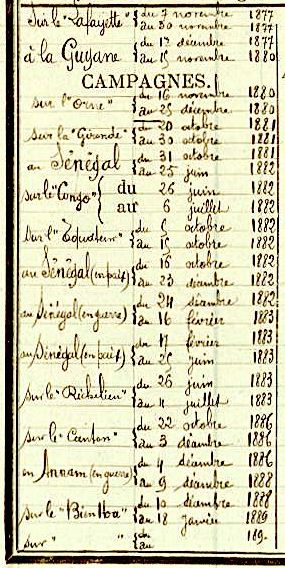 sur le "Lafayette" { du 7 novembre 1877
au 30 novembre 1877
à la Guyane { du 1er décembre 1877
au 15 novembre 1880
CAMPAGNES.
sur l'"Orne" { du 16 novembre 1880
au 25 décembre 1880
sur la "Gironde" { du 20 octobre 1881
au 30 octobre 1881
au Sénégal { du 31 octobre 1881
au 25 juin 1882
sur le "Congo" { du 26 juin 1882
au 6 juillet 1882
sur l' { du 5 octobre 1882
au 15 octobre 1882
au Sénégal (en paix) { du 16 octobre 1882
au 23 décembre 1882
au Sénégal (en guerre) { du 24 décembre 1882
au 16 février 1883
au Sénégal (en paix) { du 17 février 1883
au 25 juin 1883
sur le "Richelieu" { du 26 juin 1883
au 4 juillet 1883
sur le "Canton" { du 22 octobre 1886
au 3 décembre 1886
en Annam (en guerre) { du 4 décembre 1886
au 9 décembre 1888
sur le "Bien Hoa" { du 10 décembre 1888
au 18 janvier 1889
sur " " { du
au 189